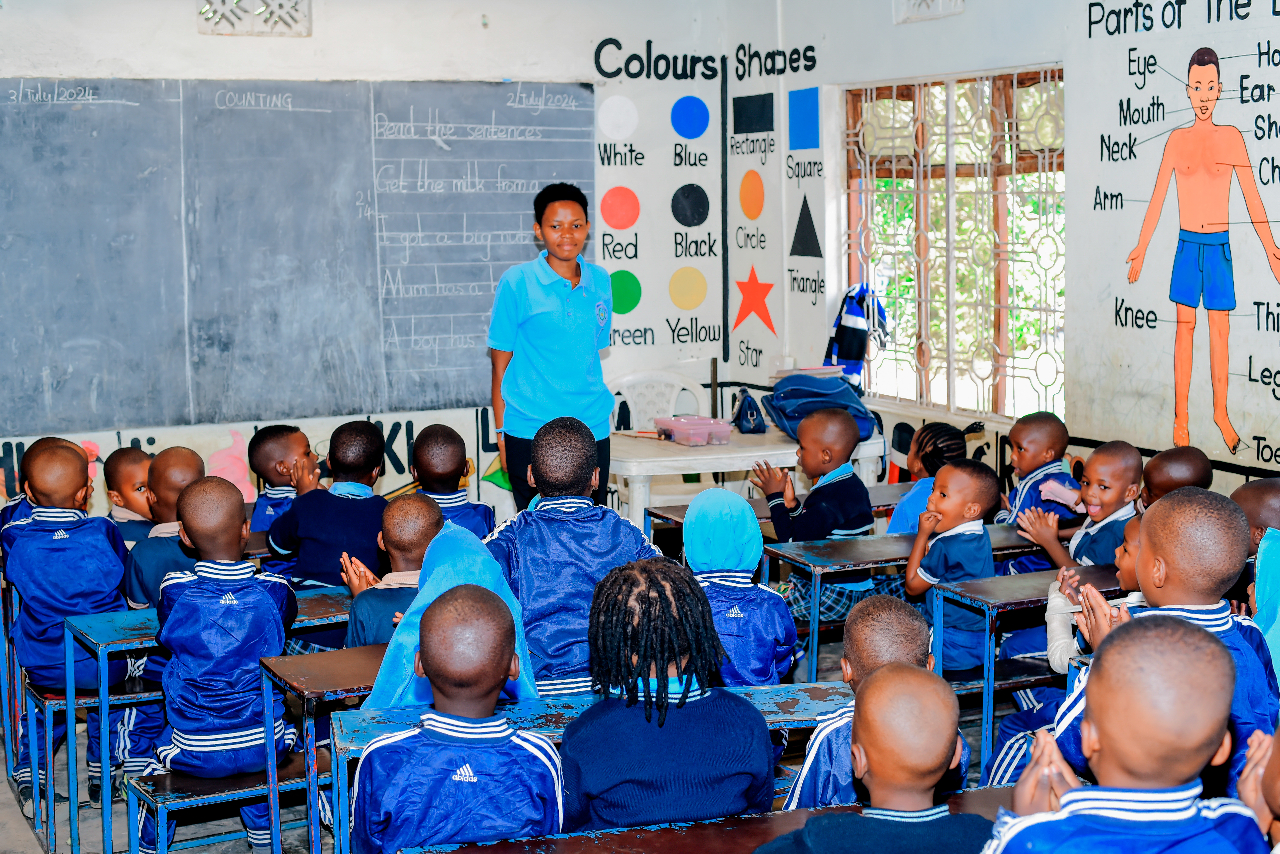 3/July/2024
COUNTING
2/July/2024
Read the sentences
Get the milk from a
I got a bug
Mum has a
A boy has
Colours
White
Blue
Red
Black
Green
Yellow
Shapes
Rectangle
Square
Circle
Triangle
Star
Parts of The
Eye
Mouth
Neck
Arm
Knee
Ear
Toe
Leg
abidas
abidas